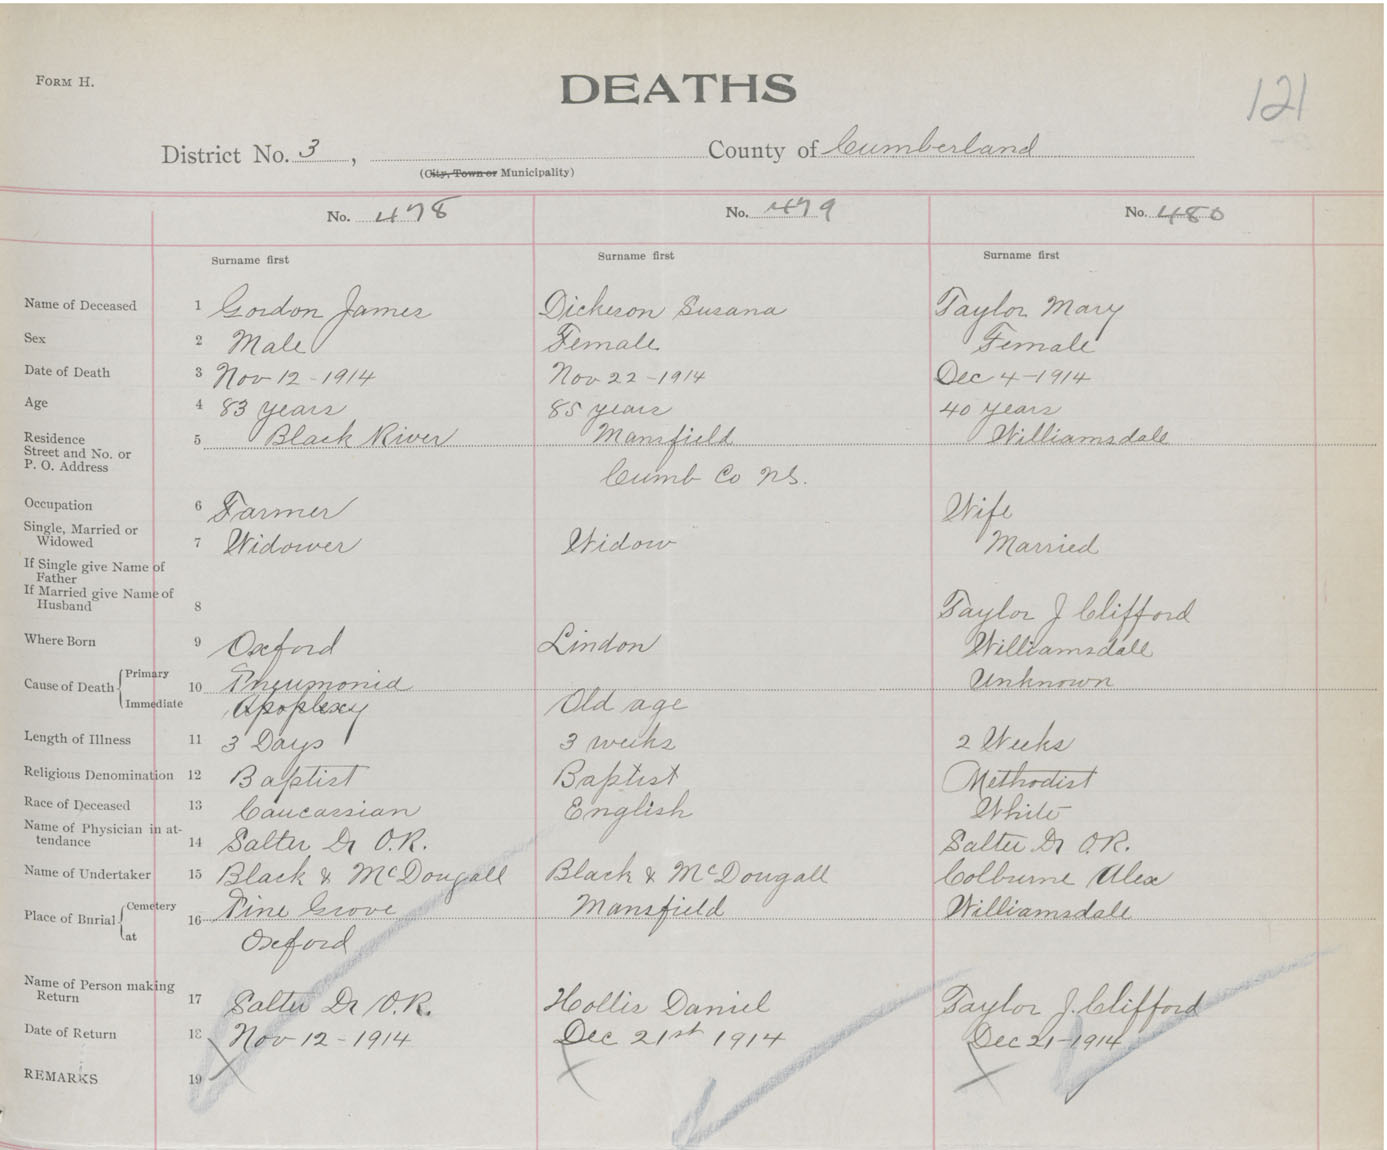 FORM H.
DEATHS
121
District No. 3, County of Cumberland
(City, Town or Municipality)
No. 478 No. 479 No. 480
Surname first Surname first Surname first
Name of Deceased 1 Gordon James Dickeson Susana Taylor Mary
Sex 2 Male Female Female
Date of Death 3 Nov 12-1914 Nov 22-1914 Dec 4-1914
Age 4 83 years 85 years 40 years
Residence
Street and No. or
P. O. Address 5 Black River Mansfield Williamsdale
Cumb Co NS.
Occupation 6 Farmer Wife
Single, Married or
Widowed 7 Widower Widow Married
If Single give Name of
Father
If Married give Name of
Husband 8 Taylor J Clifford
Where Born 9 Oxford Lindon Williamsdale
Cause of Death Primary 10 Pneumonia Unknown
Immediate Apoplexy Old age
Length of Illness 11 3 Days 3 weeks 2 Weeks
Religious Denomination 12 Baptist Baptist Methodist
Race of Deceased 13 Caucassian English White
Name of Physician in at-
tendance 14 Salter Dr O.R. Salter Dr O.R.
Name of Undertaker 15 Black & McDougall Black & McDougall Colburne Alex
Place of Burial Cemetery 16 Pine Grove Mansfield Williamsdale
at Oxford
Name of Person making
Return 17 Salter Dr O.R. Hollis Daniel Taylor J. Clifford
Date of Return 18 Nov 12-1914 Dec 21st 1914 Dec 21-1914
REMARKS 19